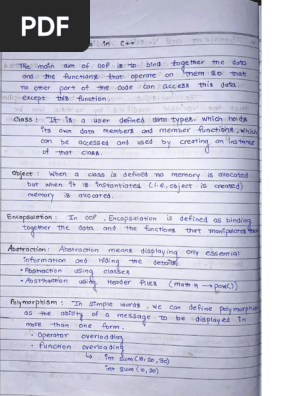 PDF
in C++
The main aim of OOP is to bind together the data
and the functions that operate on them so that
no other part of the code can access this data
except this function.
Class : It is a user defined data types, which holds
its own data members and member functions, which
can be accessed and used by creating an instance
of that class.
Object : When a class is defined no memory is allocated
but when it is instantiated (i.e, object is created)
memory is allocated.
Encapsulation : In OOP, Encapsulation is defined as binding
together the data and the functions that manipulates them
Abstraction : Abstraction means displaying only essential
information and hiding the details.
• Abstraction using classes
• Abstraction using Header files (math.h → pow())
Polymorphism : In simple words, we can define polymorphism
as the ability of a message to be displayed in
more than one form.
• Operator overloading
• Function overloading
↳ int sum(10, 20, 30)
int sum(10, 20)